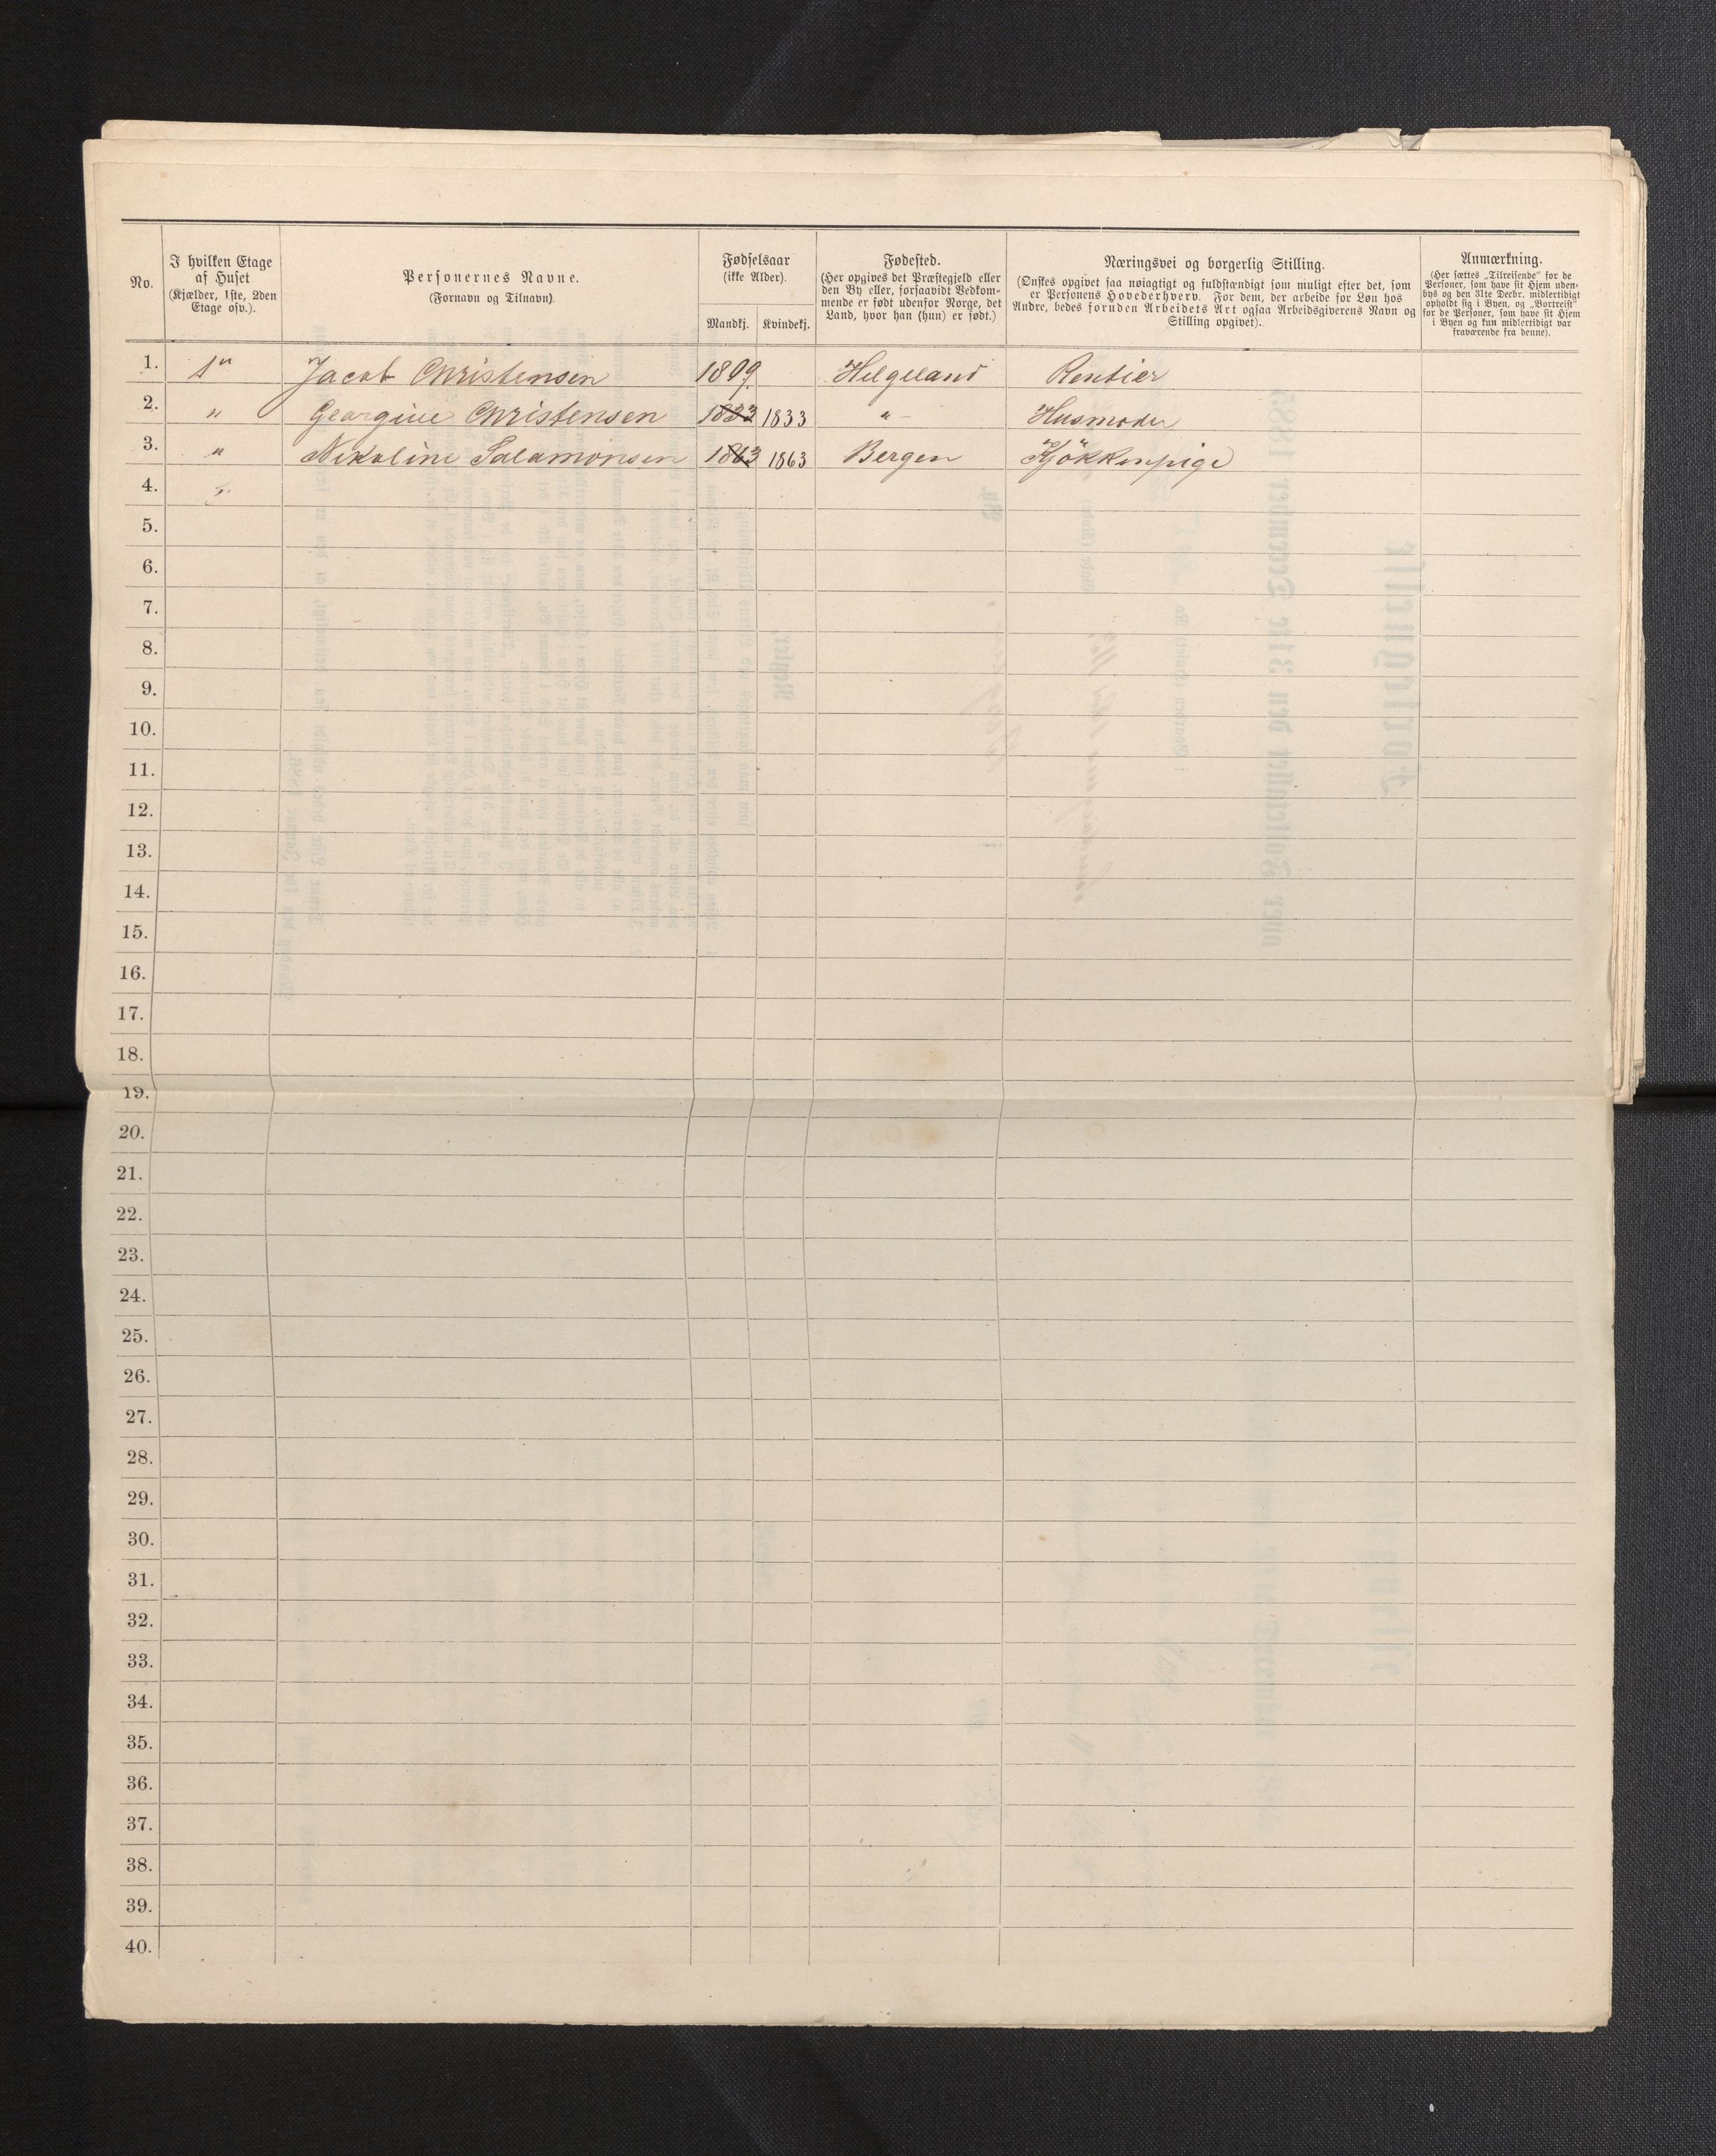 No.
I hvilken Etage
af Huset
(Kjælder, 1ste, 2den
Etage osv.).
Personernes Navne.
(Fornavn og Tilnavn).
Fødselsaar
(ikke Alder).
Mandkj.
Kvindekj.
Fødested.
(Her opgives det Præstegjeld eller
den By eller, forsaavidt Vedkom-
mende er født udenfor Norge, det
Land, hvor han (hun) er født.)
Næringsvei og borgerlig Stilling.
(Ønskes opgivet saa nøiagtigt og fuldstændigt som muligt efter det, som
er Personens Hovederhverv. For dem, der arbeide for Løn hos
Andre, bedes foruden Arbeidets Art ogsaa Arbeidsgiverens Navn og
Stilling opgivet).
Anmærkning.
(Her sættes „Tilreisende" for de
Personer, som have sit Hjem uden-
bys og den 31te Decbr. midlertidigt
opholdt sig i Byen, og „Bortreist"
for de Personer, som have sit Hjem
i Byen og kun midlertidigt var
fraværende fra denne).
1. Jacob Christensen 1809 Helgeland Rentier
2. " Georgine Christensen 1833 1833 " Husmoder
3. " Nikoline Salamonsen 1863 1863 Bergen Kjökkenpige
4.
5.
6.
7.
8.
9.
10.
11.
12.
13.
14.
15.
16.
17.
18.
19.
20.
21.
22.
23.
24.
25.
26.
27.
28.
29.
30.
31.
32.
33.
34.
35.
36.
37.
38.
39.
40.